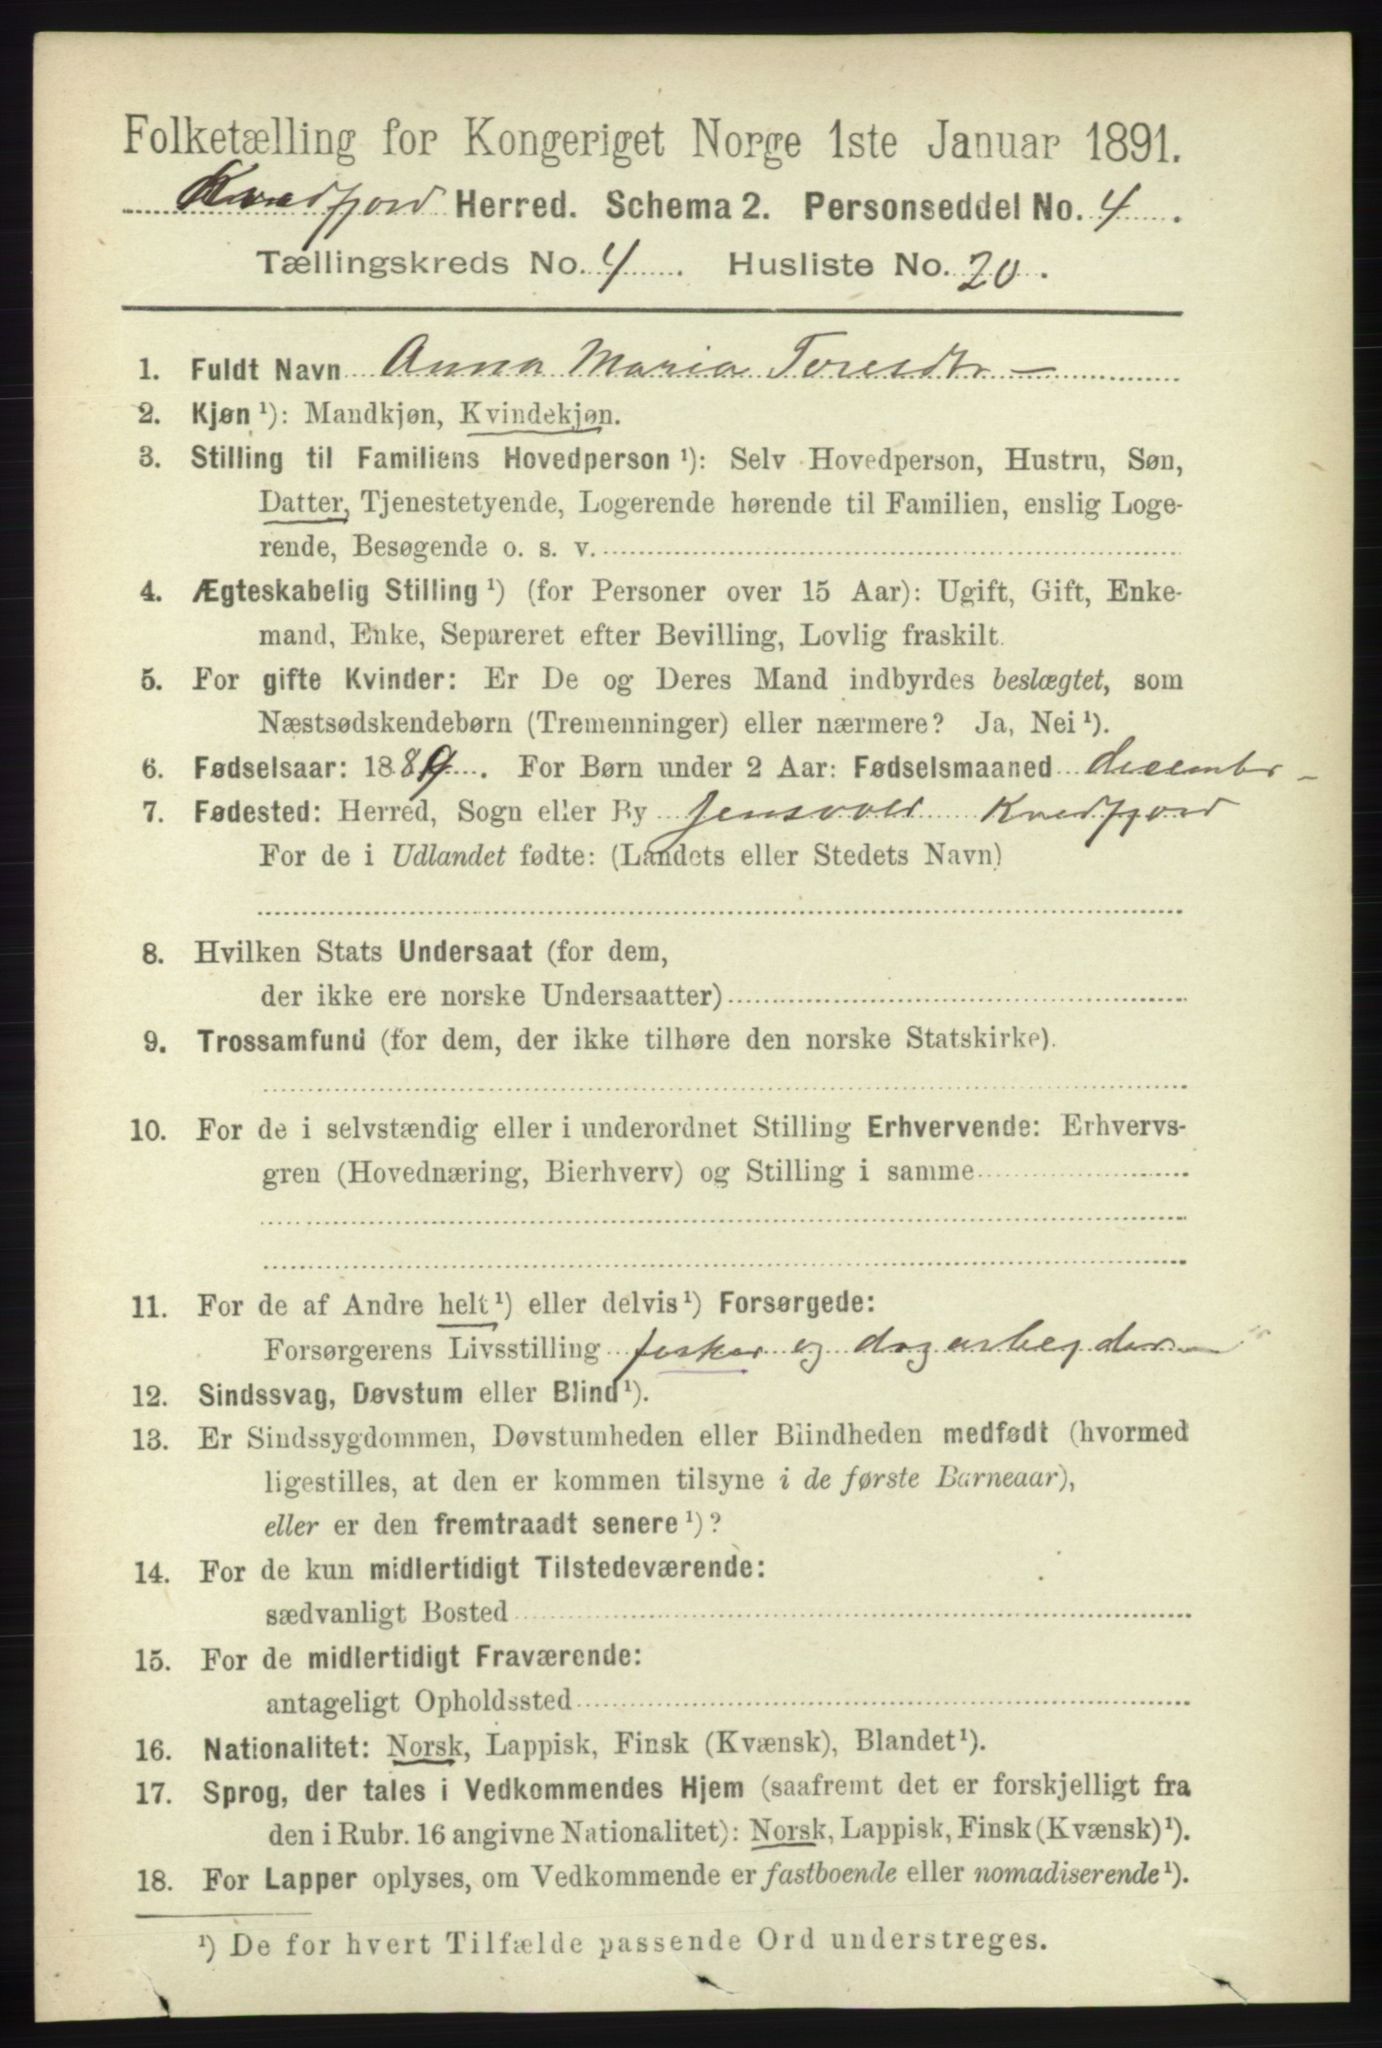 Folketælling for Kongeriget Norge 1ste Januar 1891.
Kvedfjord Herred. Schema 2. Personseddel No. 4.
Tællingskreds No. 4. Husliste No. 20.
1. Fuldt Navn Anna Maria Toresdtr –
2. Kjøn ¹): Mandkjøn, Kvindekjøn.
3. Stilling til Familiens Hovedperson ¹): Selv Hovedperson, Hustru, Søn,
Datter, Tjenestetyende, Logerende hørende til Familien, enslig Loge-
rende, Besøgende o. s. v.
4. Ægteskabelig Stilling ¹) (for Personer over 15 Aar): Ugift, Gift, Enke-
mand, Enke, Separeret efter Bevilling, Lovlig fraskilt.
5. For gifte Kvinder: Er De og Deres Mand indbyrdes beslægtet, som
Næstsødskendebørn (Tremenninger) eller nærmere? Ja, Nei ¹).
6. Fødselsaar: 1889. For Børn under 2 Aar: Fødselsmaaned december –
7. Fødested: Herred, Sogn eller By Jensvold Kvedfjord
For de i Udlandet fødte: (Landets eller Stedets Navn)
8. Hvilken Stats Undersaat (for dem,
der ikke ere norske Undersaatter)
9. Trossamfund (for dem, der ikke tilhøre den norske Statskirke).
10. For de i selvstændig eller i underordnet Stilling Erhvervende: Erhvervs-
gren (Hovednæring, Bierhverv) og Stilling i samme
11. For de af Andre helt ¹) eller delvis ¹) Forsørgede:
Forsørgerens Livsstilling fisker og dagarbeyder –
12. Sindssvag, Døvstum eller Blind ¹).
13. Er Sindssygdommen, Døvstumheden eller Blindheden medfødt (hvormed
ligestilles, at den er kommen tilsyne i de første Barneaar),
eller er den fremtraadt senere ¹)?
14. For de kun midlertidigt Tilstedeværende:
sædvanligt Bosted
15. For de midlertidigt Fraværende:
antageligt Opholdssted
16. Nationalitet: Norsk, Lappisk, Finsk (Kvænsk), Blandet ¹).
17. Sprog, der tales i Vedkommendes Hjem (saafremt det er forskjelligt fra
den i Rubr. 16 angivne Nationalitet): Norsk, Lappisk, Finsk (Kvænsk) ¹).
18. For Lapper oplyses, om Vedkommende er fastboende eller nomadiserende ¹).
¹) De for hvert Tilfælde passende Ord understreges.